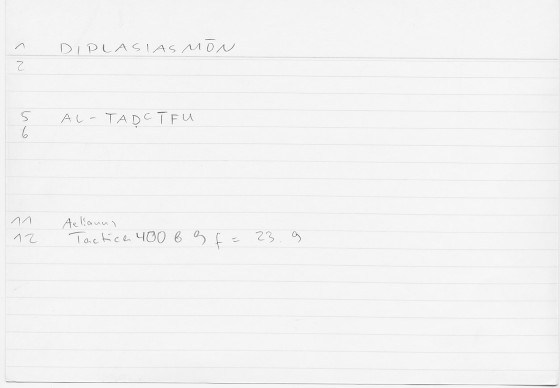 1 DIPLASIASMŌN
2
5 AL-TAḌCĪFU
6
11 Aelianus
12 Tactica 400 B 9 f = 23.9